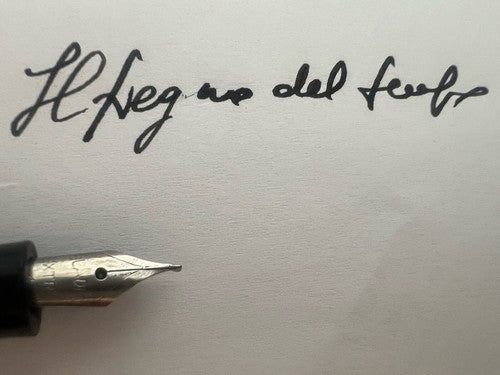 Il segno del tempo